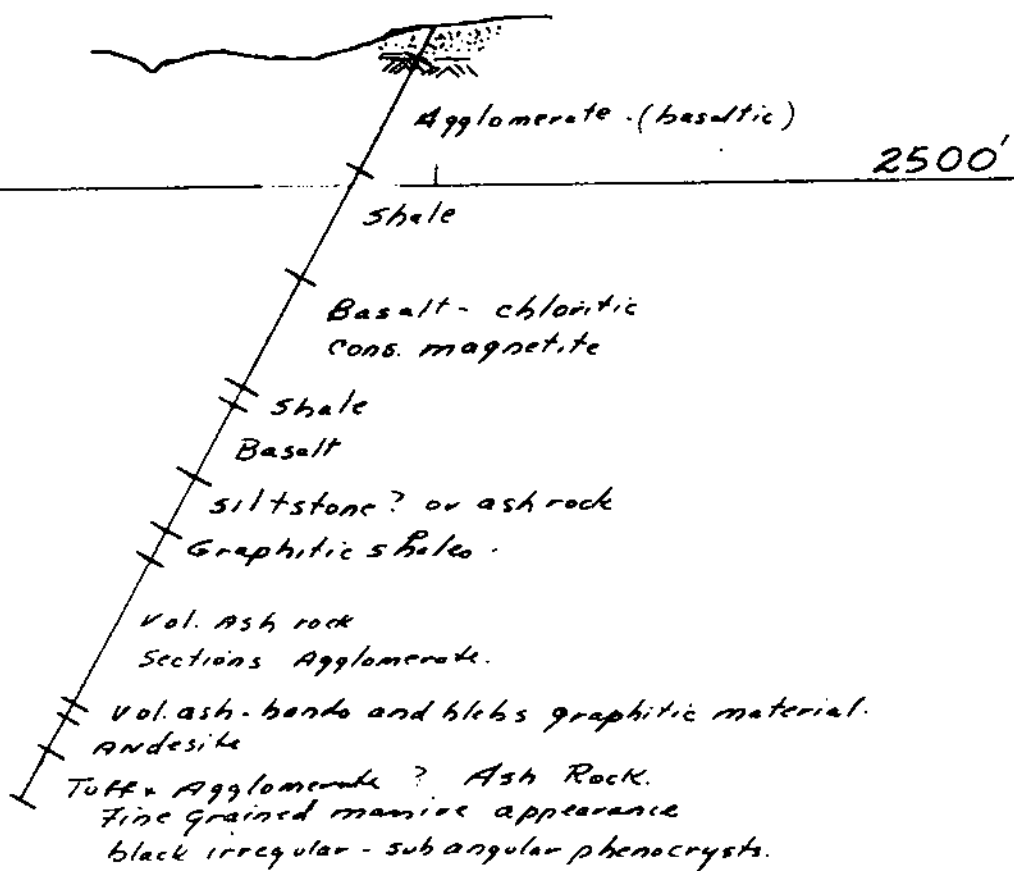 Agglomerate. (basaltic)
2500'
Shale
Basalt - chloritic
Cons. magnetite
Shale
Basalt
Siltstone? or ash rock
Graphitic shales.
Vol. Ash rock
Sections Agglomerate.
Vol. ash - bands and blebs graphitic material.
Andesite
Tuff & Agglomerate ? Ash Rock.
Fine grained massive appearance
black irregular - sub angular phenocrysts.